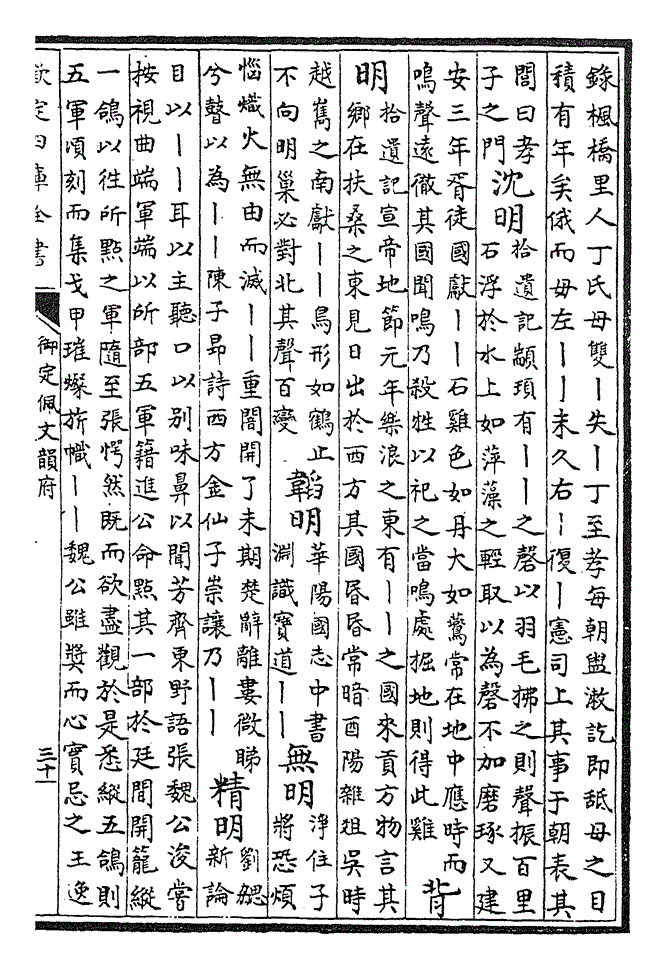 錄楓橋里人丁氏母雙丨失丨丁至孝每朝盥漱訖即舐母之目
積有年矣俄而母左丨丨未久右丨復丨憲司上其事于朝表其
閭曰孝
子之門
沈明
拾遺記顓頊有丨丨之磬以羽毛拂之則聲振百里
石浮於水上如萍藻之輕取以為磬不加磨琢又建
安三年胥徒國獻丨丨石雞色如丹大如鷰常在地中應時而
鳴聲遠徹其國聞鳴乃殺牲以祀之當鳴處掘地則得此雞
背
明
拾遺記宣帝地節元年樂浪之東有丨丨之國來貢方物言其
鄉在扶桑之東見日出於西方其國昏昏常暗酉陽雜俎吳時
越嶲之南獻丨丨鳥形如鶴止
不向明巢必對北其聲百變
韜明
華陽國志中書
淵識寶道丨丨
無明
淨住子
將恐煩
惱熾火無由而滅丨丨重闇開了未期楚辭離婁微睇
兮瞽以為丨丨陳子昂詩西方金仙子崇讓乃丨丨
精明
劉勰
新論
目以丨丨耳以主聽口以別味鼻以聞芳齊東野語張魏公浚嘗
按視曲端軍端以所部五軍籍進公命點其一部於廷間開籠縱
一鴿以往所點之軍隨至張愕然既而欲盡觀於是悉縱五鴿則
五軍頃刻而集戈甲璀燦旂幟丨丨魏公雖獎而心實忌之王逸
欽定四庫全書
御定佩文韻府
三十一